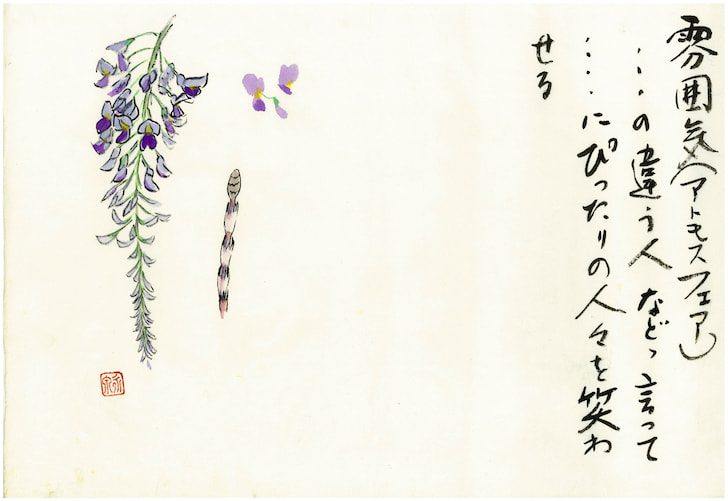 雰囲気(アトモスフェアー)
....の違う人などゝ言って
.....にぴったりの人々を笑わ
せる